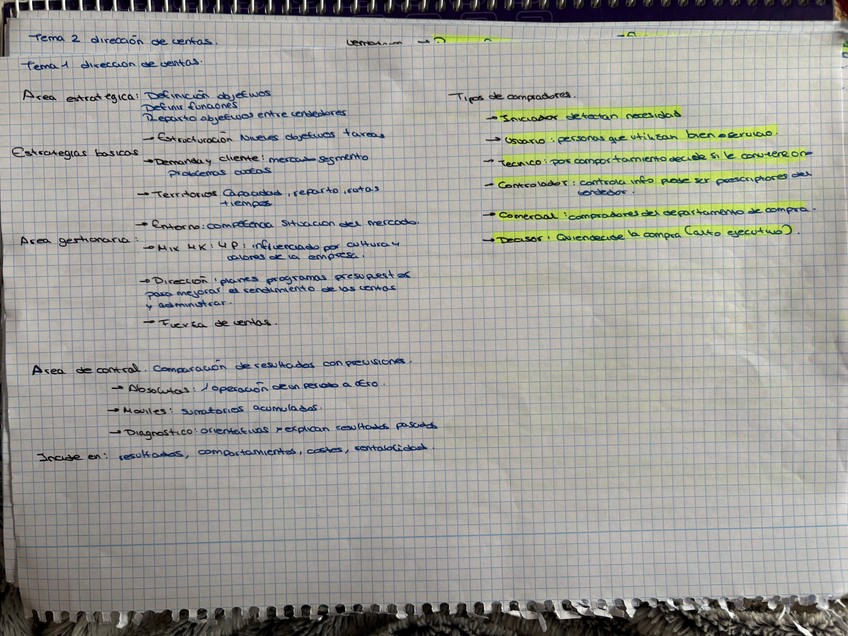 Tema 2 dirección de ventas.
Tema 1 dirección de ventas.
Area estrategica: Definición objetivos
Definir funciones
Reparto objetivos entre vendedores
→ Estructuración Nuevos objetivos tareas
Estrategias basicas
→ Demanda y cliente: mercado segmento
problemas
→ Territorios Capacidad, reparto, rutas
tiempos
→ Entorno: competencia situación del mercado.
Area gestionaria:
→ Mix MK: 4P: influenciado por cultura y
valores de la empresa.
→ Dirección: planes programas presupuestos
para mejorar el rendimiento de las ventas
y administrar.
→ Fuerza de ventas.
Area de control. Comparación de resultados con previsiones.
→ Absolutas: 1 operación de un periodo a otro.
→ Moviles: sumatorios acumulados.
→ Diagnostico: orientativas explican resultados pasados
Incide en: resultados, comportamientos, costes, rentabilidad.
Tipos de compradores.
→ Iniciador detectan necesidad
→ Usuario: personas que utilizan bien o servicio.
→ Tecnico: por comportamiento decide si le conviene o no
→ Controlador: controla info puede ser prescriptores del
vendedor.
→ Comercial: compradores del departamento de compra.
→ Decisor: Quien decide la compra (alto ejecutivo).